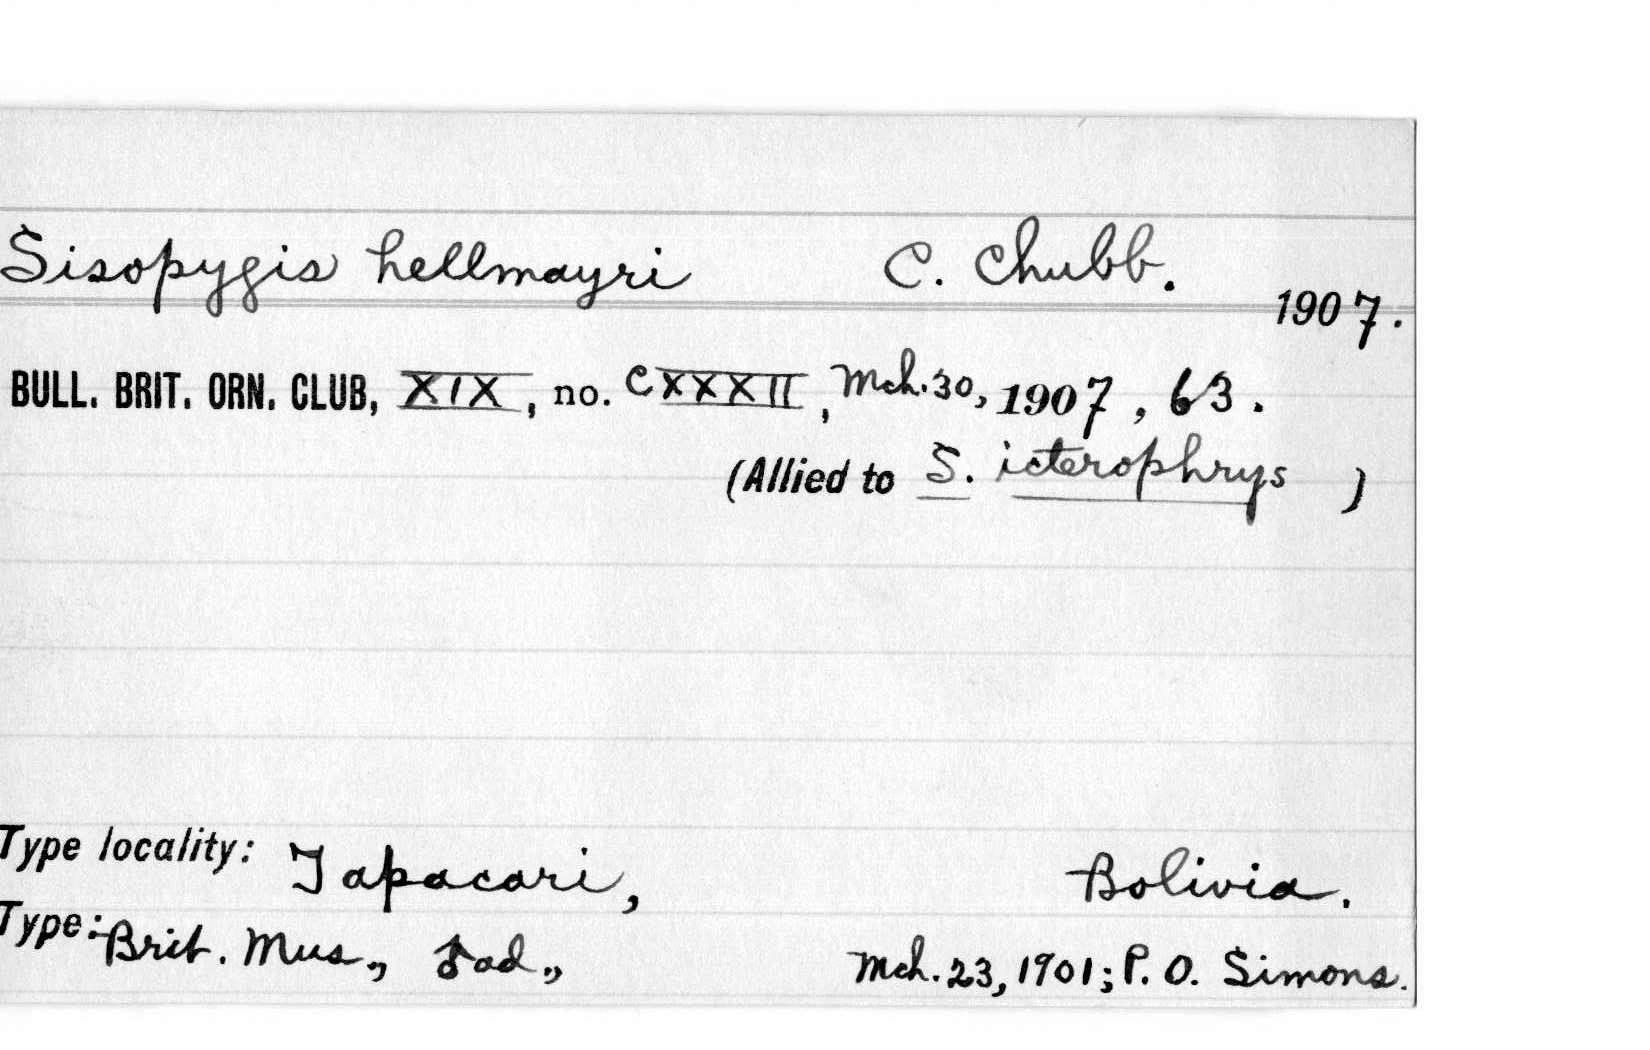 Sisopygis hellmayri C. Chubb.
1907.
BULL. BRIT. ORN. CLUB, XIX, no. CXXXII, Mch. 30, 1907, 63.
(Allied to S. icterophrys )
Type locality: Tapacari, Bolivia.
Type: Brit. Mus., ♂ ad., Mch. 23, 1901; P. O. Simons.